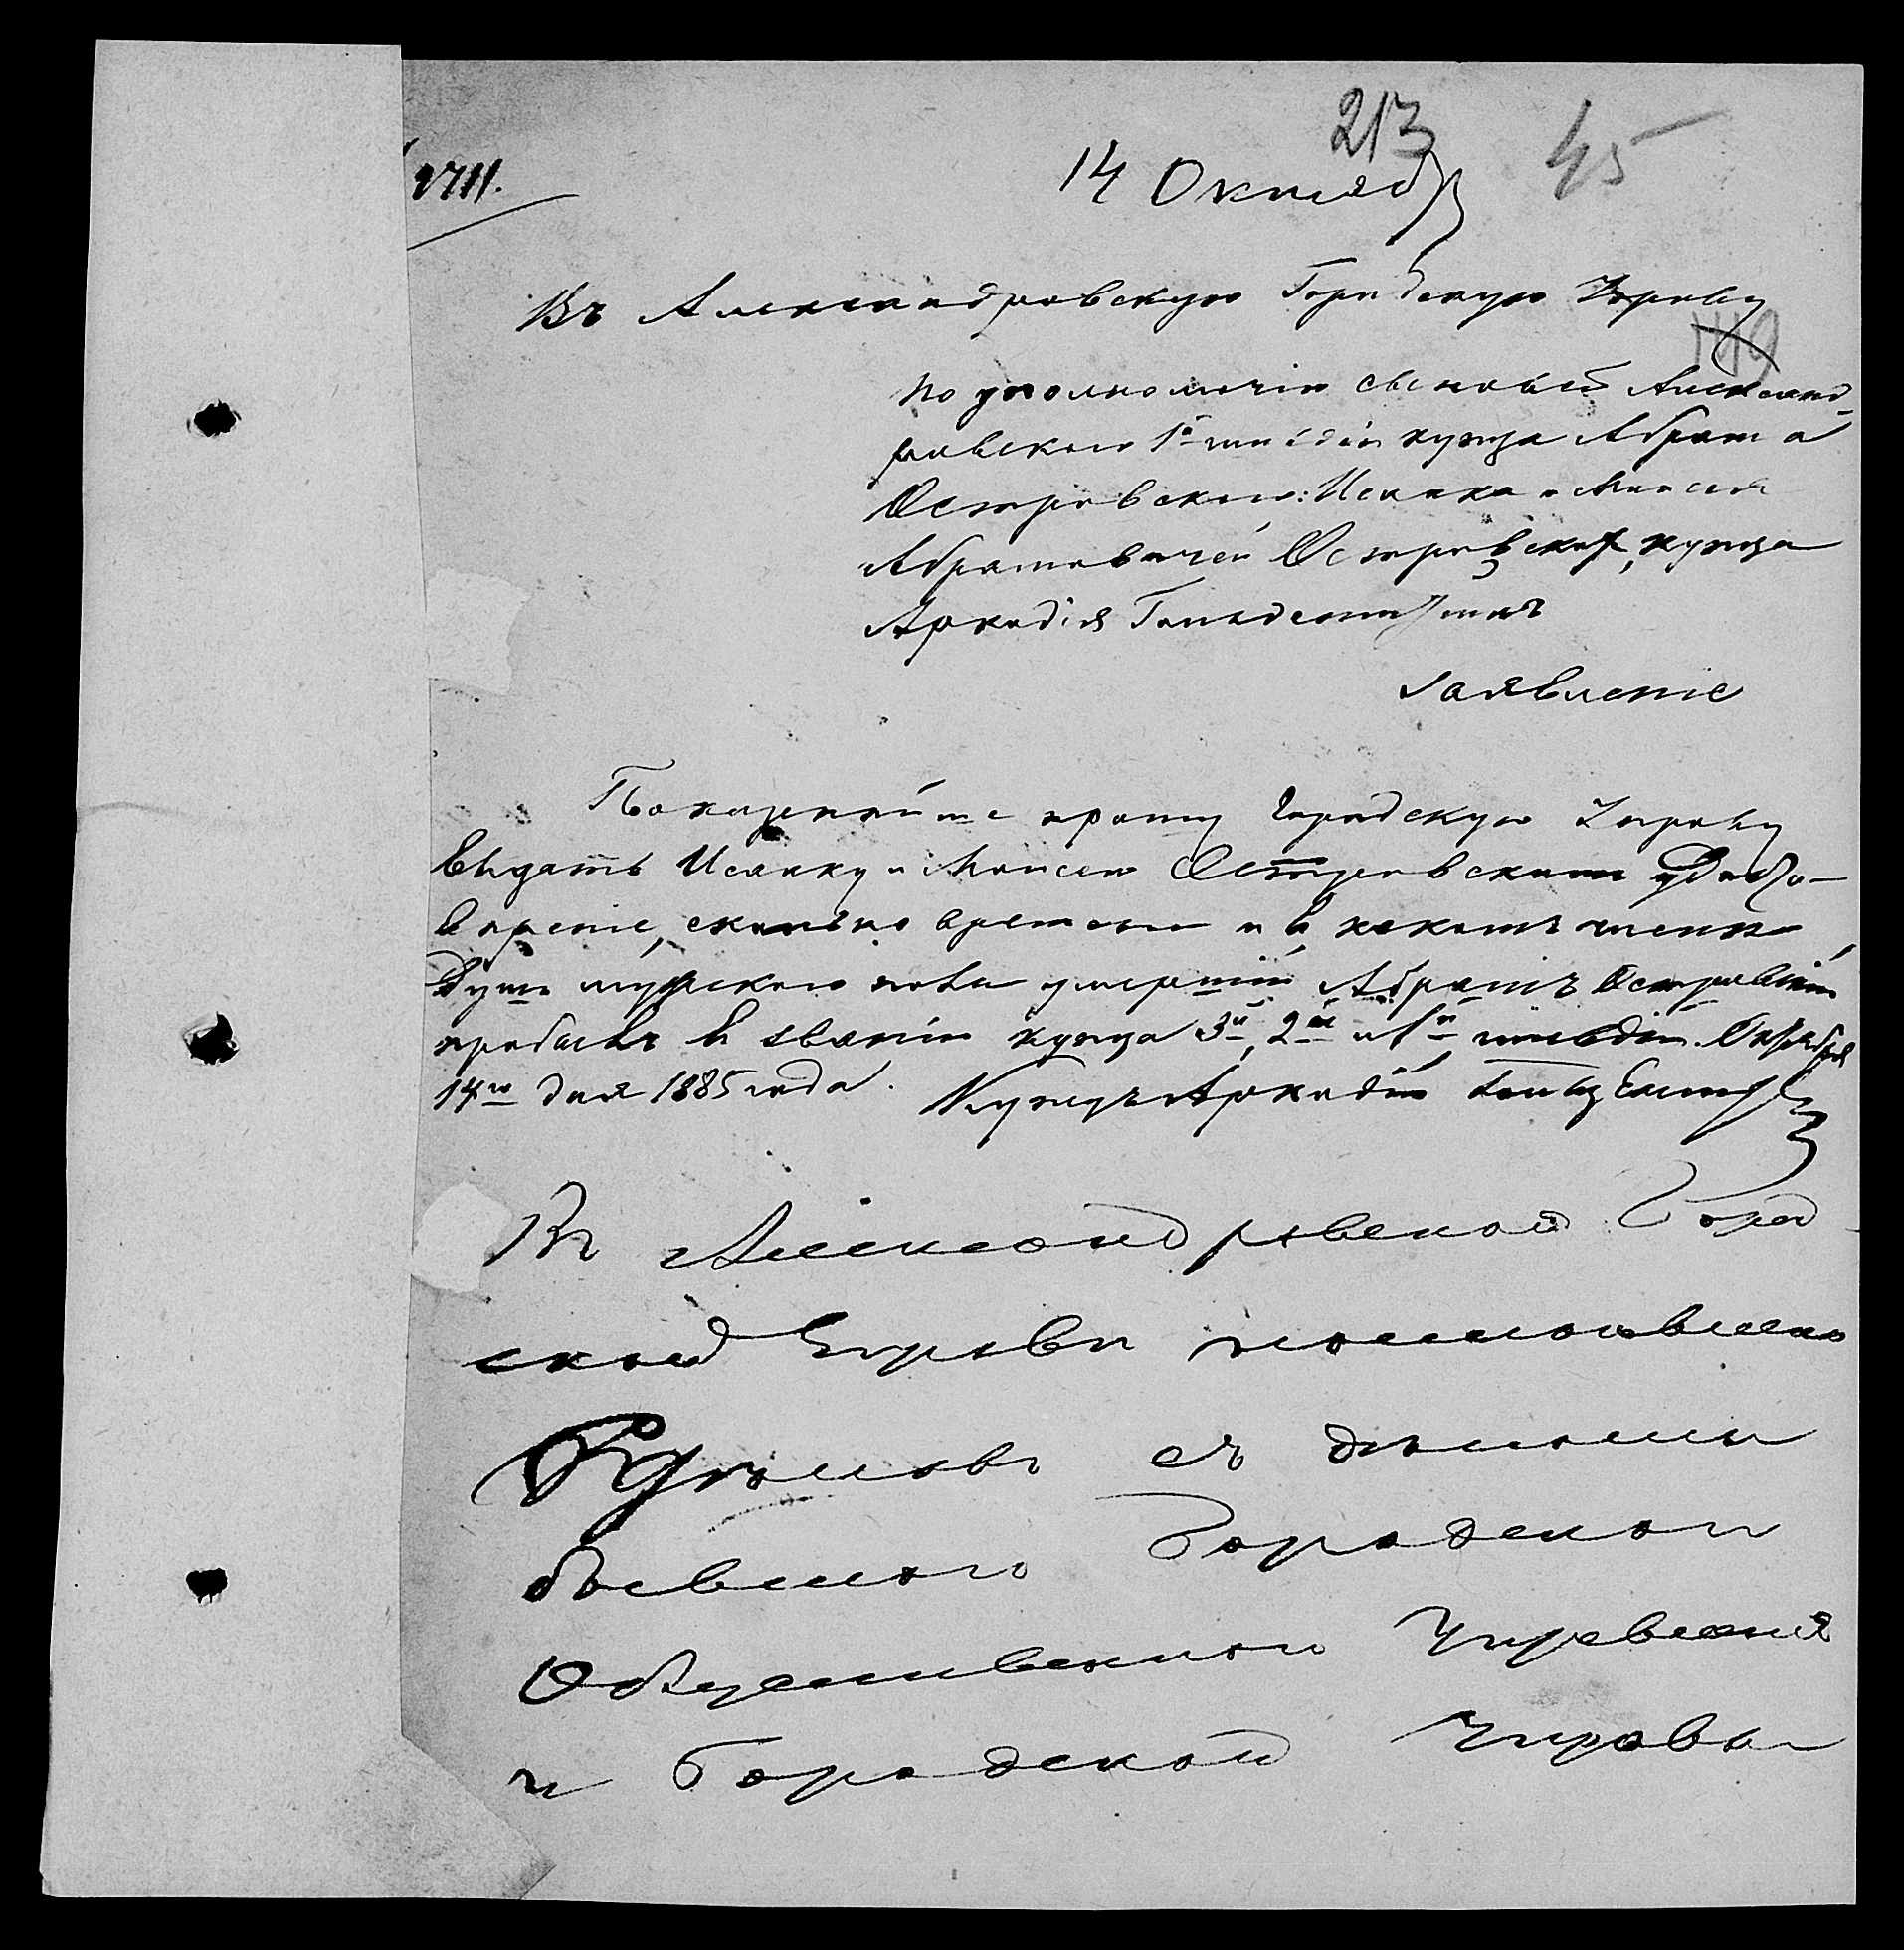 213 45
2711. 14 Октябр
Въ Александровскую Городскую Управу
149
по уполномочію сыновей Александ-
ровскаго 1й гильдіи купца Абрама
Островскаго: Исаака и Моисея
Абрамовичей Островскихъ, купца
Аркадія
Заявленіе
Покорнейше прошу Городскую Управу
выдать Исааку и Моисею Островскимъ удосто-
вереніе, сколько времени и въ какомъ числе
душъ мужескаго пола умершій Абрамъ Островскій
пробылъ въ званіи купца 3й, 2й и 1й гильдіи. Октября
14го дня 1885 года. Купецъ Аркадій
Въ Александровской Город
ской Управе
съ делами
бывшаго Городскаго
Общественнаго Управленія
и Городской Управы